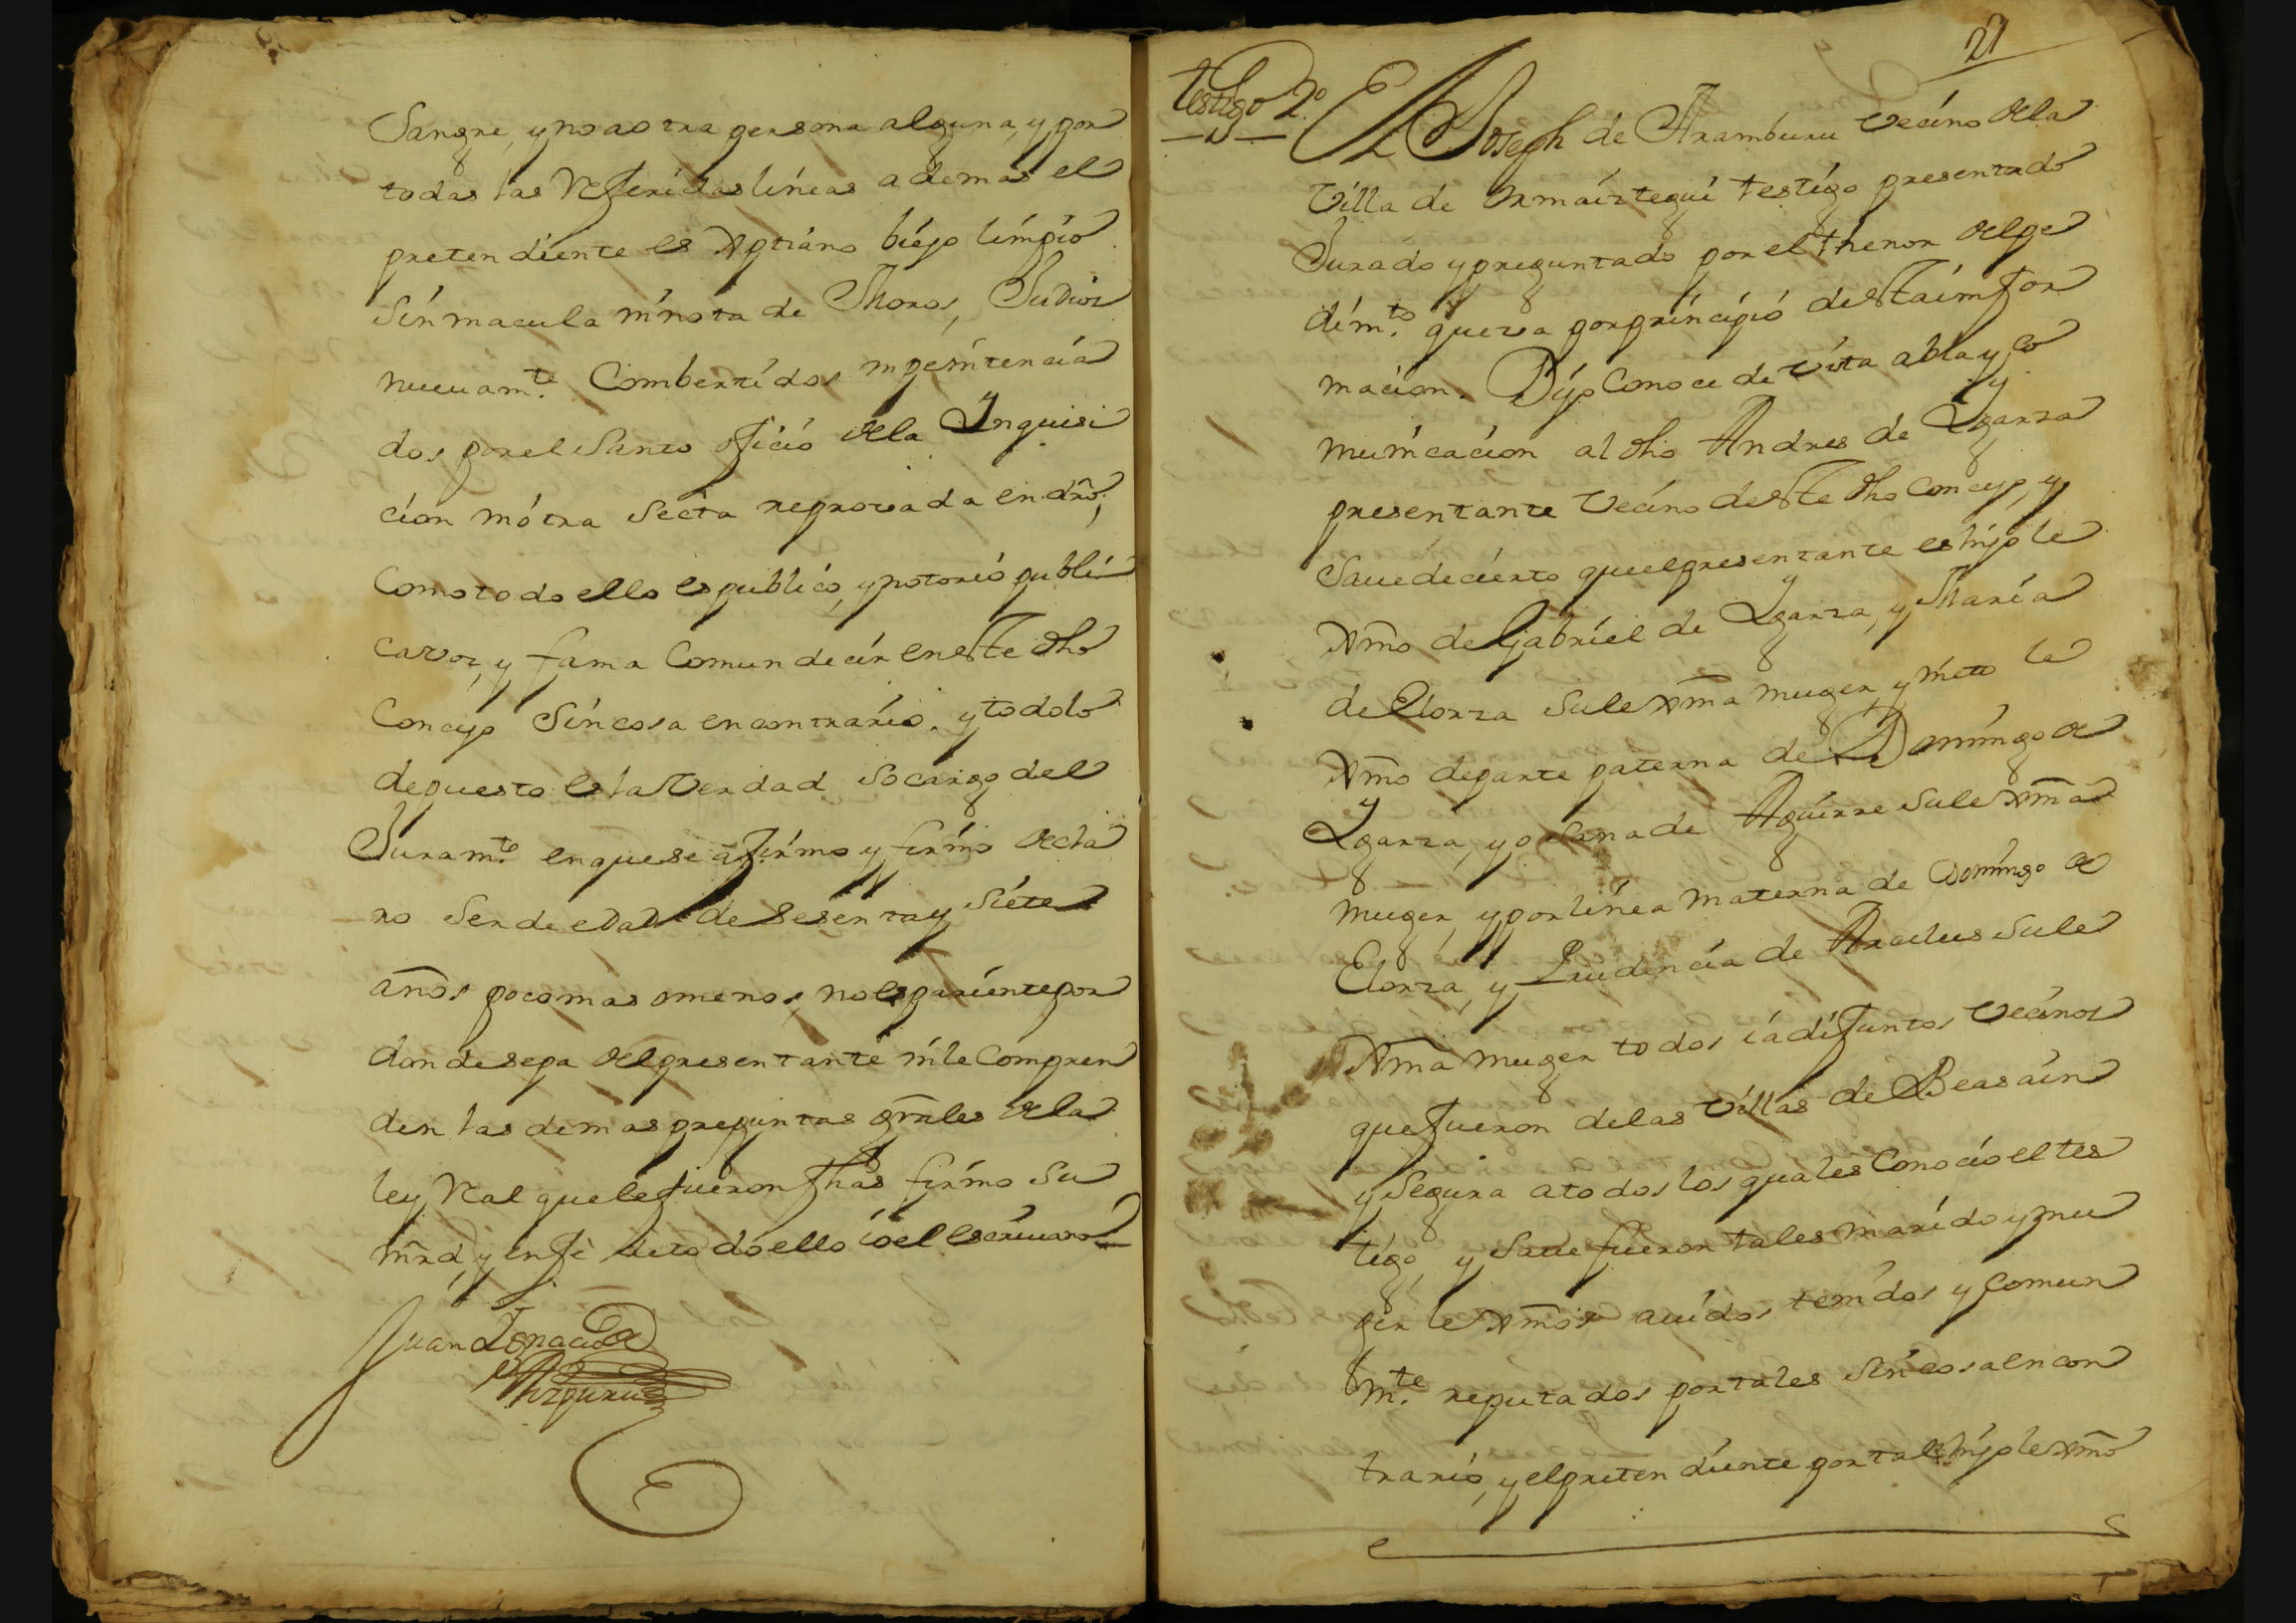 Sangre, y no a otra persona alguna, y por
todas las Referidas lineas ademas el
pretendiente es Xptiano biejo limpio
sin macula ni nota de Moros, Judios
nueuamte. Combertidos ni penitencia
dos por el Santo oficio dela Ynquisi
cion ni otra Secta reprovada en dro,
Como todo ello es publico, y notorio publi
ca voz, y fama Comun decir en este dho
Concejo Sin cosa en contrario. y todo lo
depuesto es la Verdad so cargo del
Juramto. en que se afirmo y firmo decla
ro Ser de edad de sesenta y siete
años poco mas o menos, no es pariente por
donde sepa del presentante ni le Compren
den las demas preguntas gnrales dela
ley Real que le fueron fhas firmo Su
mrd, y en fè de todo ello io el escriuano
Juan Ygnacio de
Aizpuru
21
testigo 2º
El Joseph de Aramburu Vecino dela
Villa de Ormaiztegui testigo presentado
Jurado y preguntado por el thenor del pe
dimto. que va por principio desta infor
macion. Dijo Conoce de vista abla y co
municacion al dho Andres de Ygarza
presentante Vecino deste dho Concejo, y
Saue de cierto que el presentante es hijo le
Xmo de Gabriel de Ygarza, y Maria
de Elorza su le Xma muger, y nieto le
Xmo de parte paterna de Domingo de
Ygarza, y osana de Aguirre su le Xma
muger, y por linea materna de Domingo de
Elorza, y Prudencia de Araclus su le
Xma muger todos ia difuntos Vecinos
que fueron delas Villas de Beasain
y Segura a todos los quales Conocio el tes
tigo, y Saue fueron tales marido y mu
ger le Xmos auidos tenidos y Comun
mte. reputados por tales Sin cosa en con
trario, y el pretendiente por tal hijo le Xmo